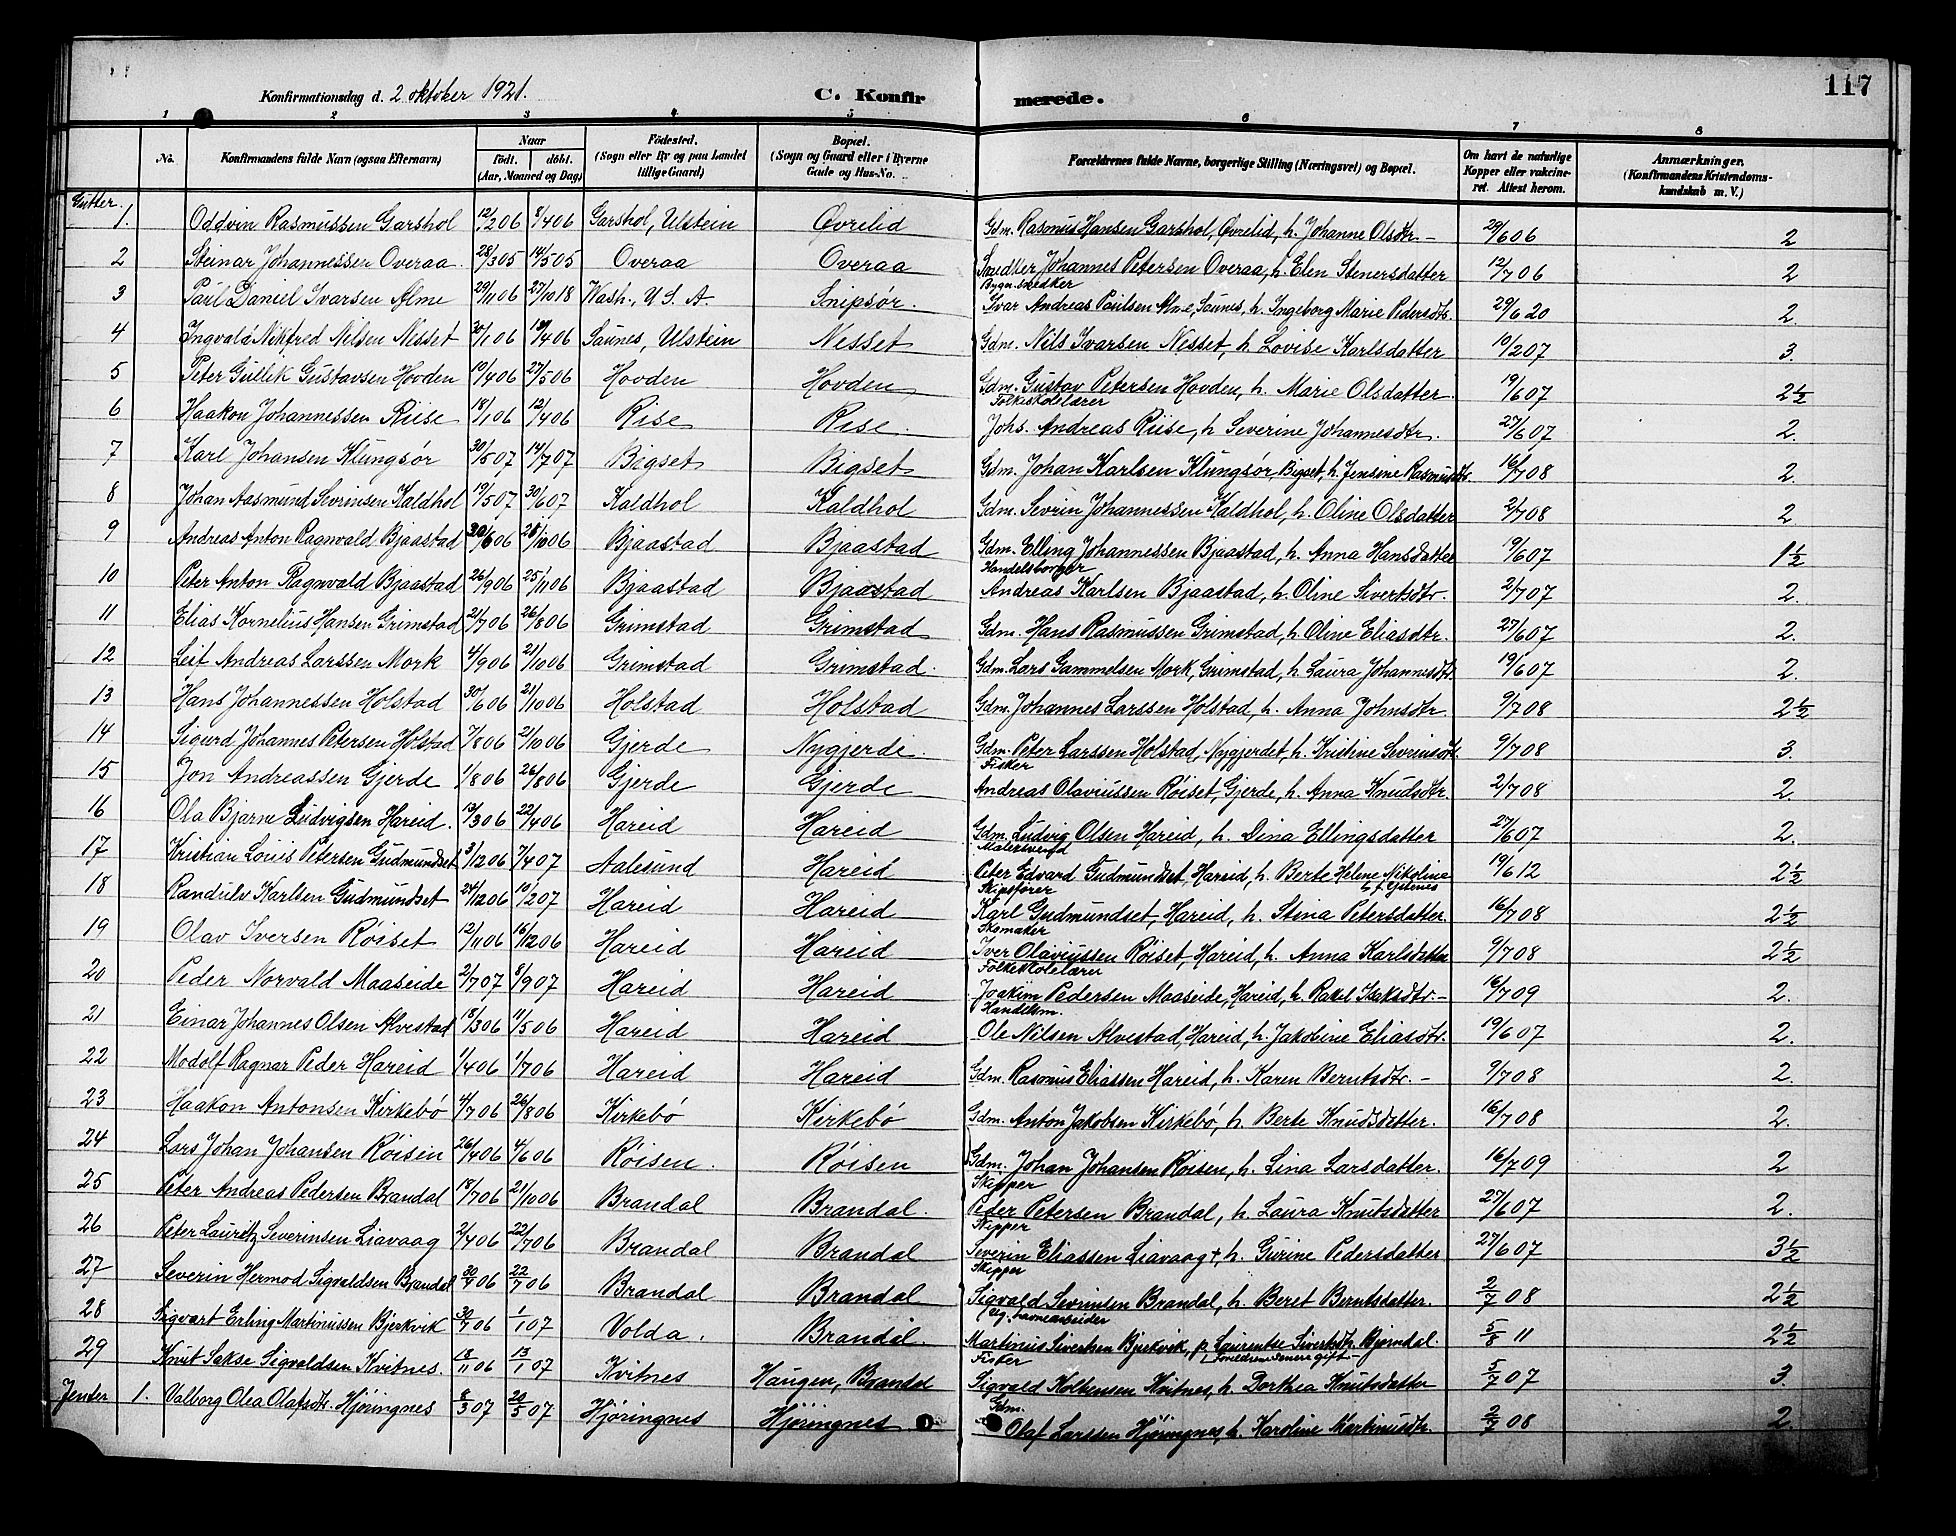 117
Konfirmationsdag d. 2 oktober 1921.
C. Konfirmerede.
1 2 3 4 5 6 7 8
No. Konfirmandens fulde Navn (ogsaa Efternavn) Naar født. døbt. (Aar, Maaned og Dag) Fødested. (Sogn eller By og paa Landet tillige Gaard) Bopæl. (Sogn og Gaard eller i Byerne Gade og Hus-No. Forældrenes fulde Navne, borgerlige Stilling (Næringsvei) og Bopæl. Om havt de naturlige Kopper eller vakcineret. Attest herom. Anmærkninger. (Konfirmandens Kristendomskundskab m. V.)
Gutter.
1. Oddvin Rasmussen Garshol 12/2 06 8/4 06 Garshol, Ulstein Øvrelid Gdm. Rasmus Hansen Garshol, Øvrelid, h. Johanne Olsdtr. 6 06 2
2 Steinar Johannessen Overaa 28/3 05 14/5 05 Overaa Overaa Johannes Petersen Overaa, h. Elen Stenersdatter 12/7 06 2
3 Paul Daniel Ivarsen Alme 29/11 06 27/10 18 Wash., U.S.A. Snipsør. Bygn.snedker Ivar Andreas Paulsen Alme, Saunes, h. Ingeborg Marie Pedersdtr. 29/6 20 2.
4 Ingvald Nikfred Nilsen Nesset 30/1 06 4 06 Saunes, Ulstein Nesset Gdm. Nils Ivarsen Nesset, h. Lovise Karlsdatter 10/2 07 3.
5 Peter Gullik Gustavsen Hovden 10/4 06 27/5 06 Hovden Hovden Gdm. Gustav Petersen Hovden, h. Marie Olsdatter 19/6 07 2½
6 Haakon Johannessen Riise 18/1 06 12/4 06 Rise Rise. Folkeskolelærer Johs. Andreas Riise, h Severine Johannesdtr. 27/6 07 2.
7 Karl Johansen Klungsør 30/5 07 14/7 07 Bigset Bigset Gdm. Johan Karlsen Klungsør, Bigset, h. Jensine Rasmusdtr. 16/7 08 2.
8 Johan Aasmund Sevrinsen Kaldhol 19/5 07 30/6 07 Kaldhol Kaldhol Gdm. Sevrin Johannessen Kaldhol, h. Oline Olsdatter 2/7 08 2
9 Andreas Anton Ragnvald Bjaastad 6 06 28/10 06 Bjaastad Bjaastad Gdm. Elling Johannessen Bjaastad, h. Anna Hansdatter 19/6 07 1½
10 Peter Anton Ragnvald Bjaastad 26/9 06 25/11 06 Bjaastad Bjaastad Handelsborger Andreas Karlsen Bjaastad, h. Oline Sivertsdtr. 2/7 07 2.
11 Elias Kornelius Hansen Grimstad 21/7 06 26/8 06 Grimstad Grimstad Gdm. Hans Rasmussen Grimstad, h. Oline Eliasdtr. 27/6 07 2.
12 Leif Andreas Larssen Mork 4/9 06 21/10 06 Grimstad Grimstad. Gdm. Lars Sammelsen Mork, Grimstad, h. Laura Johannesdtr. 19/6 07 2.
13 Hans Johannessen Holstad 30/6 06 21/10 06 Holstad Holstad Gdm. Johannes Larssen Holstad, h. Anna Johnsdtr. 9/7 08 2½
14 Sigurd Johannes Petersen Holstad 7/8 06 21/10 06 Gjerde Nygjerde. Gdm. Peter Larssen Holstad, Nygjerdet, h. Kristine Sevrinsdtr. 9/7 08 3.
15 Jon Andreassen Gjerde 1/8 06 26/8 06 Gjerde Gjerde Fisker Andreas Olaviussen Røiset, Gjerde, h. Anna Knudsdtr. 2/7 08 2.
16 Ola Bjarne Ludvigsen Hareid. 13/3 06 22/4 06 Hareid Hareid Gdm. Ludvig Olsen Hareid, h. Dina Ellingsdatter 27/6 07 2.
17 Kristian Louis Petersen Gudmundset 3/12 06 7/4 07 Aalesund Hareid Malersvend Peter Edvard Gudmundset, Hareid, h. Berte Helene Nikolina f. Gjelenes 19/6 12 2½
18 Randulv Karlsen Gudmundset 24/12 06 10/2 07 Hareid Hareid Skipsfører Karl Gudmundset, Hareid, h. Stina Petersdatter 16/7 08 2½
19 Olav Iversen Røiset 12/11 06 16/12 06 Hareid Hareid Skomaker Iver Olaviussen Røiset, Hareid, h. Anna Karlsdatter 9/7 08 2½
20 Peder Norvald Maaseide 2/7 07 8/9 07 Hareid Hareid Folkeskolelærer Joakim Pedersen Maaseide, Hareid, h. Rakel Isaksdtr. 16/7 09 2.
21 Einar Johannes Olsen Alvestad 18/3 06 11/5 06 Hareid Hareid Handelsm. Ole Nilsen Alvestad, Hareid, h. Jakobine Eliasdtr. 19/6 07 2.
22 Modolf Ragnar Peder Hareid 1/4 06 1/7 06 Hareid Hareid Gdm. Rasmus Eliassen Hareid, h. Karen Berntsdtr. 9/7 08 2.
23 Haakon Antonsen Kirkebø 4/7 06 26/8 06 Kirkebø Kirkebø Gdm. Anton Jakobsen Kirkebø, h. Berte Knudsdatter. 16/7 08 2.
24 Lars Johan Johansen Røisen 26/4 06 4/6 06 Røisen. Røisen Gdm. Johan Johansen Røisen, h. Lina Larsdatter. 16/7 09 2
25 Peter Andreas Pedersen Brandal 18/7 06 21/10 06 Brandal Brandal. Skipper Peder Petersen Brandal, h. Laura Knutsdatter 27/6 07 2.
26 Peter Lauritz Severinsen Liavaag 2/4 06 22/7 06 Brandal Brandal Skipper Severin Eliassen Liavaag + h. Gurine Pedersdatter 27/6 07 3½
27 Severin Hermod Sigvaldsen Brandal 06 22/7 06 Brandal Brandal Skipper Sigvald Sevrinsen Brandal, h. Beret Berntsdatter. 2/7 08 2½
28 Sigvart Erling Martinussen Bjerkvik 30/7 06 1/1 07 Volda. Brandal. Martinus Sivertsen Bjerkvik, p. Laurentse Sivertsdtr. Bjørndal. Forældrene senere gift 5/8 11 2½
29 Knut Sakse Sigvaldsen Kvitnes. 18/11 06 13/1 07 Kvitnes Haugen, Brandal Fisker Sigvald Kolbensen Kvitnes, h. Dorthea Knutsdatter 5/7 07 3.
Jenter 1. Valborg Olea Olafsdtr. Hjøringnes 8/3 07 20/5 07 Hjøringnes Hjøringnes Gdm. Olaf Larssen Hjøringnes, h. Karoline Martinusdtr. 2/7 08 2.